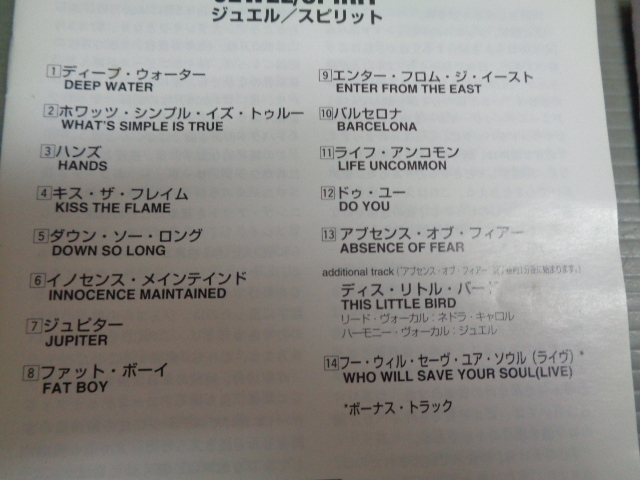 JEWEL/SPIRIT
ジュエル／スピリット
1 ディープ・ウォーター
DEEP WATER
2 ホワッツ・シンプル・イズ・トゥルー
WHAT'S SIMPLE IS TRUE
3 ハンズ
HANDS
4 キス・ザ・フレイム
KISS THE FLAME
5 ダウン・ソー・ロング
DOWN SO LONG
6 イノセンス・メインテインド
INNOCENCE MAINTAINED
7 ジュピター
JUPITER
8 ファット・ボーイ
FAT BOY
9 エンター・フロム・ジ・イースト
ENTER FROM THE EAST
10 バルセロナ
BARCELONA
11 ライフ・アンコモン
LIFE UNCOMMON
12 ドゥ・ユー
DO YOU
13 アブセンス・オブ・フィアー
ABSENCE OF FEAR
additional track (「アブセンス・オブ・フィアー
ディス・リトル・バード
THIS LITTLE BIRD
リード・ヴォーカル：ネドラ・キャロル
ハーモニー・ヴォーカル：ジュエル
14 フー・ウィル・セーヴ・ユア・ソウル（ライヴ）*
WHO WILL SAVE YOUR SOUL(LIVE)
*ボーナス・トラック